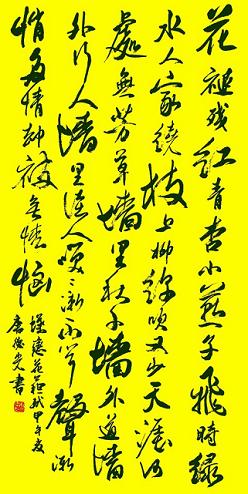 花褪残红青杏小燕子飛時緑
水人家繞枝上柳綿吹又少天涯何
處無芳草墙里秋千墙外道墙
外行人墙里佳人笑笑渐不闻聲渐
悄多情却被無情恼
恋花 甲午夏
唐 書